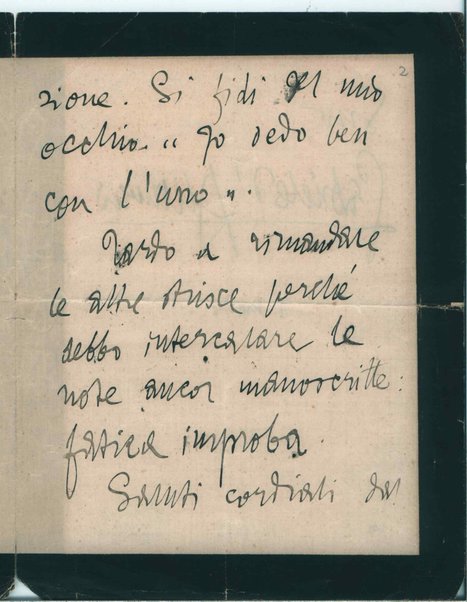 2
zione. Si fidi del mio
occhio. "Io vedo ben
con l'uno".
Tardo a rimandare
le altre strisce perché
debbo intercalare le
note ancor manoscritte:
fatica improba.
Saluti cordiali dal